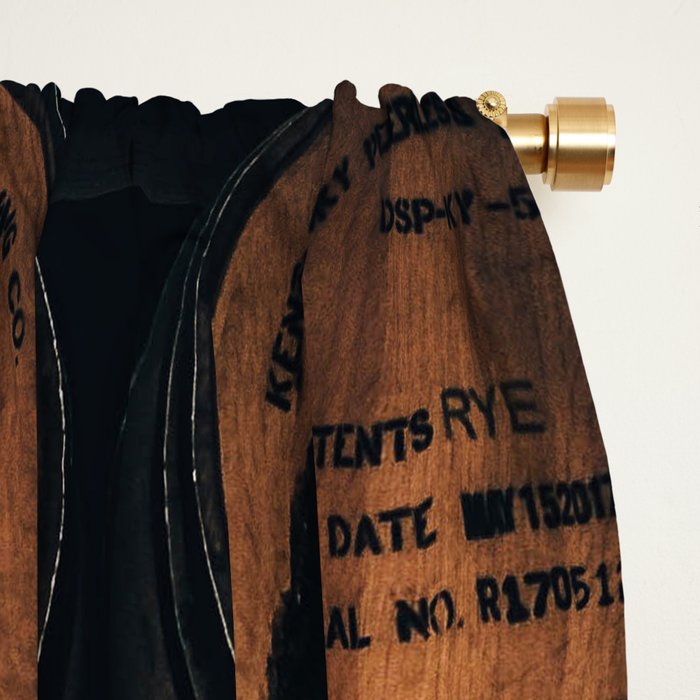 NG CO.
KENTUCKY PEERLESS
DSP-KY-5
TENTS RYE
DATE MAY 15 2017
AL NO. R17051